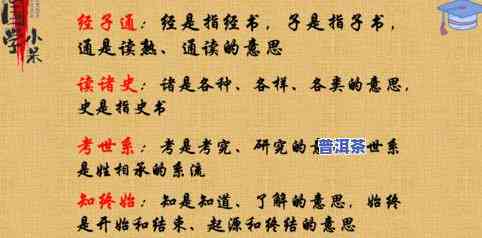 国学
小呆
经子通：经是指经书，子是指子书，
通是读熟、通读的意思
读诸史：诸是各种、各样、各类的意思，
史是指史书
考世系：考是考究、研究的 普洱茶 世系
是姓相承的系流
知终始：知是知道、了解的意思，始终
是开始和结束、起源和终结的意思